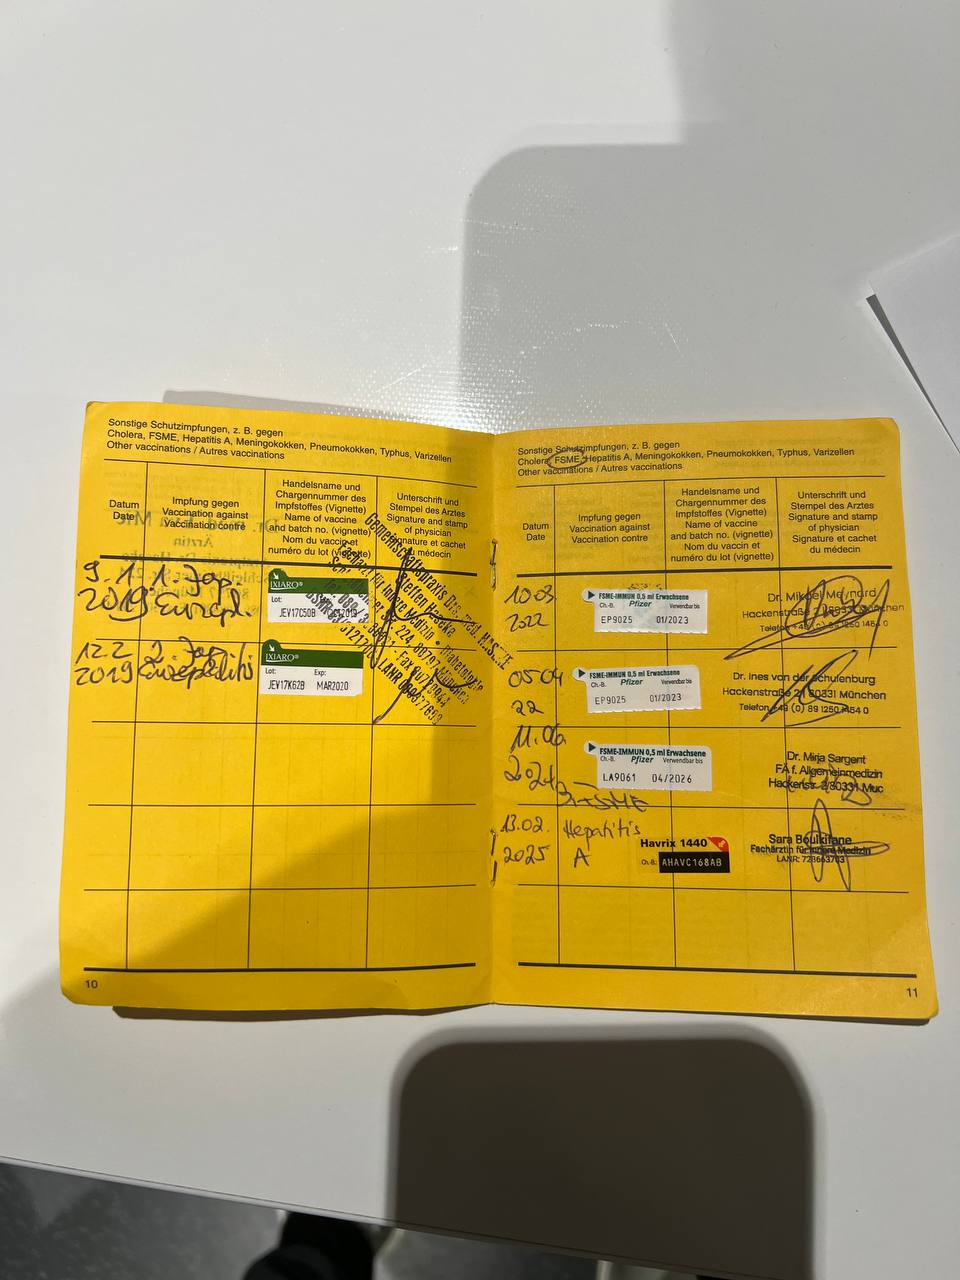 Sonstige Schutzimpfungen, z. B. gegen
Cholera, FSME, Hepatitis A, Meningokokken, Pneumokokken, Typhus, Varizellen
Other vaccinations / Autres vaccinations
Datum
Date
Impfung gegen
Vaccination against
Vaccination contre
Handelsname und
Chargennummer des
Impfstoffes (Vignette)
Name of vaccine
and batch no. (vignette)
Nom du vaccin et
numéro du lot (vignette)
Unterschrift und
Stempel des Arztes
Signature and stamp
of physician
Signature et cachet
du médecin
9.1. 1. Jap
2019
IXIARO®
Lot:
JEV17C50B
12.2. 2. Jap
2019
IXIARO®
Lot: Exp:
JEV17K62B MAR2020
Gemeinschaftspraxis
10
Sonstige Schutzimpfungen, z. B. gegen
Cholera, FSME, Hepatitis A, Meningokokken, Pneumokokken, Typhus, Varizellen
Other vaccinations / Autres vaccinations
Datum
Date
Impfung gegen
Vaccination against
Vaccination contre
Handelsname und
Chargennummer des
Impfstoffes (Vignette)
Name of vaccine
and batch no. (vignette)
Nom du vaccin et
numéro du lot (vignette)
Unterschrift und
Stempel des Arztes
Signature and stamp
of physician
Signature et cachet
du médecin
10.03.
2022
FSME-IMMUN 0,5 ml Erwachsene
Ch.-B. Pfizer Verwendbar bis
EP9025 01/2023
Dr. Mikael Maynard
Hackenstraße 2/80331 München
05 04
22
FSME-IMMUN 0,5 ml Erwachsene
Ch.-B. Pfizer Verwendbar bis
EP9025 01/2023
Dr. Ines von der Schulenburg
Hackenstraße 2/ 80331 München
Telefon +49 (0) 89 1250 1454 0
11.06.
2024
FSME-IMMUN 0,5 ml Erwachsene
Ch.-B. Pfizer Verwendbar bis
LA9061 04/2026
3. FSME
Dr. Mirja Sargent
FÄ f. Allgemeinmedizin
Hackenstr. 2/80331 Muc
13.02.
2025
Hepatitis
A
Havrix 1440
Ch.-B.: AHAVC168AB
Sara
Fachärztin für Innere Medizin
LANR: 728663703
11